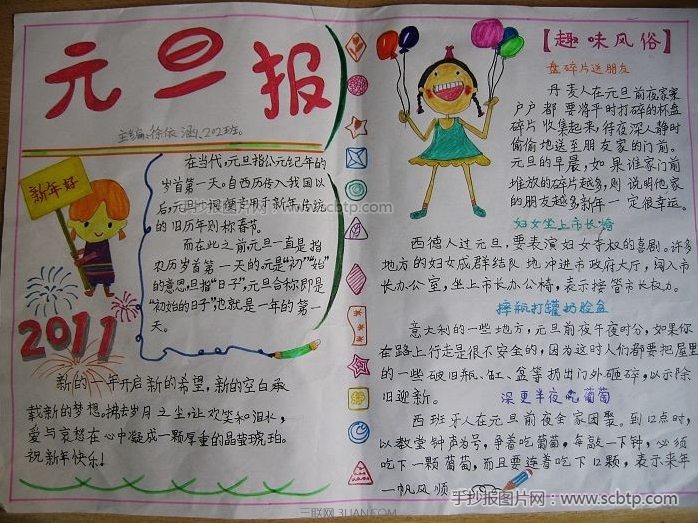 元旦报
主编:徐依涵,202班。
新年好
2011
在当代,元旦指公元纪年的
岁首第一天。自西历传入我国以
后,元旦一词便专用于新年,传统
的旧历年则称春节。
而在此之前元旦一直是指
农历岁首第一天的。元是“初”“始”
的意思,旦指“日子”,元旦合称即是
“初始的日子”也就是一年的第一
天。
新的一年开启新的希望,新的空白承
载新的梦想。拂去岁月之尘,让欢笑和泪水,
爱与哀愁在心中凝成一颗厚重的晶莹琥珀。
祝新年快乐!
【趣味风俗】
盘碎片送朋友
丹麦人在元旦前夜家家
户户都要将平时打碎的杯盘
碎片收集起来,待夜深人静时
偷偷地送至朋友家的门前。
元旦的早晨,如果谁家门前
堆放的碎片越多,则说明他家
的朋友越多新年一定很幸运。
妇女坐上市长椅
西德人过元旦,要表演妇女夺权的喜剧。许多
地方的妇女成群结队地冲进市政府大厅,闯入市
长办公室,坐上市长办公椅,表示接管市长权力。
摔瓶打罐扔脸盆
意大利的一些地方,元旦前夜午夜时分,如果你
在路上行走是很不安全的,因为这时人们都要把屋里
的一些破旧瓶、缸、盆等扔出门外砸碎,以示除
旧迎新。
深更半夜吃葡萄
西班牙人在元旦前夜全家团聚。到12点时,
以教堂钟声为号,争着吃葡萄,每敲一下钟,必须
吃下一颗葡萄,而且要连着吃下12颗,表示来年
一帆风顺
手抄报图片网:www.scbtp.com
手抄报图片网:www.scbtp.com
三联网 3LIAN.COM